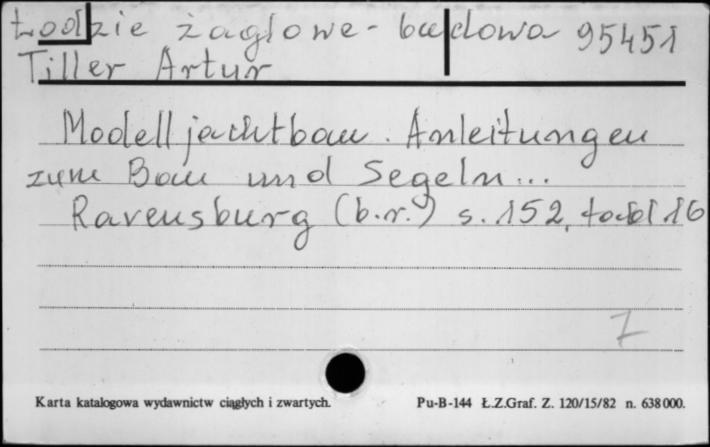 Łodzie żaglowe - budowa 95451
Tiller Artur
Modelljachtbau. Anleitungen
zum Bau und Segeln...
Ravensburg (b.r.) s. 152, tabl 16
7
Karta katalogowa wydawnictw ciągłych i zwartych. Pu-B-144 Ł.Z.Graf. Z. 120/15/82 n. 638000.